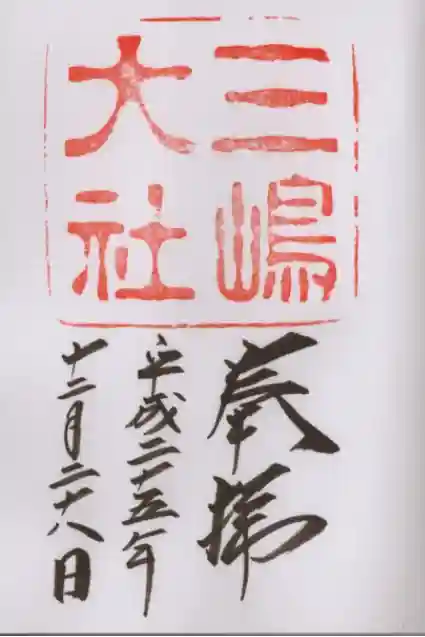 三嶋
大社
奉拝
平成二十五年
十二月二十八日